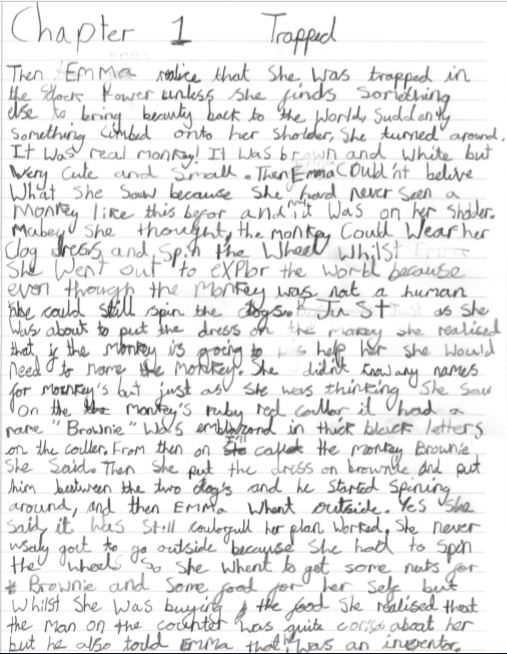 Chapter 1 Trapped
Then EMMa realice that She was trapped in
the clock tower unless she finds Something
else to bring beauty back to the World, Suddenly
Something climbed onto her sholder, She turned around.
It Was real monkey! It Was brown and white but
Very Cute and Small. Then Emma COuld'nt belive
What She Saw because She had never Seen a
Monkey like this befor and it Was on her Sholder.
Mabey She thought, the monkey Could Wear her
Clog dress and Spin the Wheel Whilst
She Went out to explor the World because
even though the Monkey was not a human
he could still spin the clogs." JuSt as She
Was about to put the dress on the monkey she realised
that if the Monkey is going to help her She Would
Need to name the Monkey. She didn't know any names
for Monkey's but just as She was thinking She Saw
On the Monkey's ruby red collar it had a
name "Brownie" Was emblazond in thick black letters
on the coller. From then on I'll call the monkey Brownie
She Said. Then She put the dress on brownie and put
him between the two clog's and he Started Spining
around, and then EMMa Whent outside. Yes She
Said, it was Still coulorfull her plan Worked, She never
usaly goct to go outside because She had to Spin
the wheel So She Whent to get some nuts for
Brownie and Some food for her Self but
Whilst She Was buying the food She realised that
the Man on the counter Was quite about her
but he also tould EMMa that I Was an inventor.